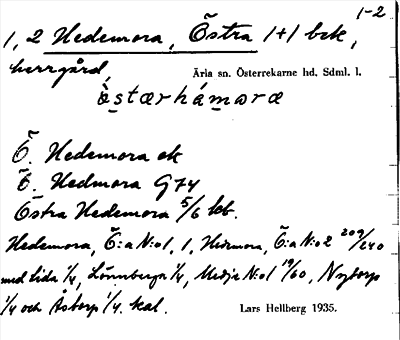 1-2
1, 2 Hedemora, Östra 1+1 bek,
herrgård,
Ärla sn. Österrekarne hd. Sdml. l.
ö̀stærhámoræ
Ö. Hedemora ek
Ö. Hedmora G74
Östra Hedemora 5/6 kb.
Hedemora, Ö:a N:o 1, 1, Hedmora, Ö:a N:o 2 209/240
med Lida 1/4, Lönnberga 1/4, N:o 1 19/60,
1/4 och Åstorp 1/4. kal.
Lars Hellberg 1935.